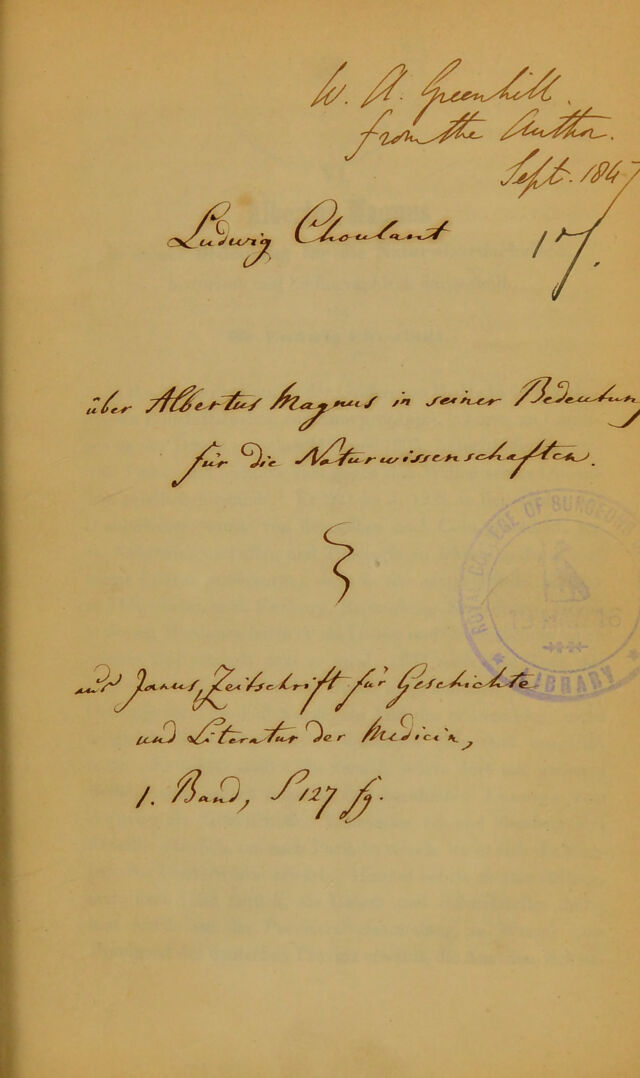 W. A. Greenhill.
from the Author.
Sept. 1847
Ludwig Choulant
17.
über Albertus Magnus in seiner Bedeutung
für die Naturwissenschaften.
aus Janus, Zeitschrift für Geschichte
und Literatur der Medicin,
1. Band, S 127 fg.
ROYAL COLLEGE OF SURGEONS
LIBRARY